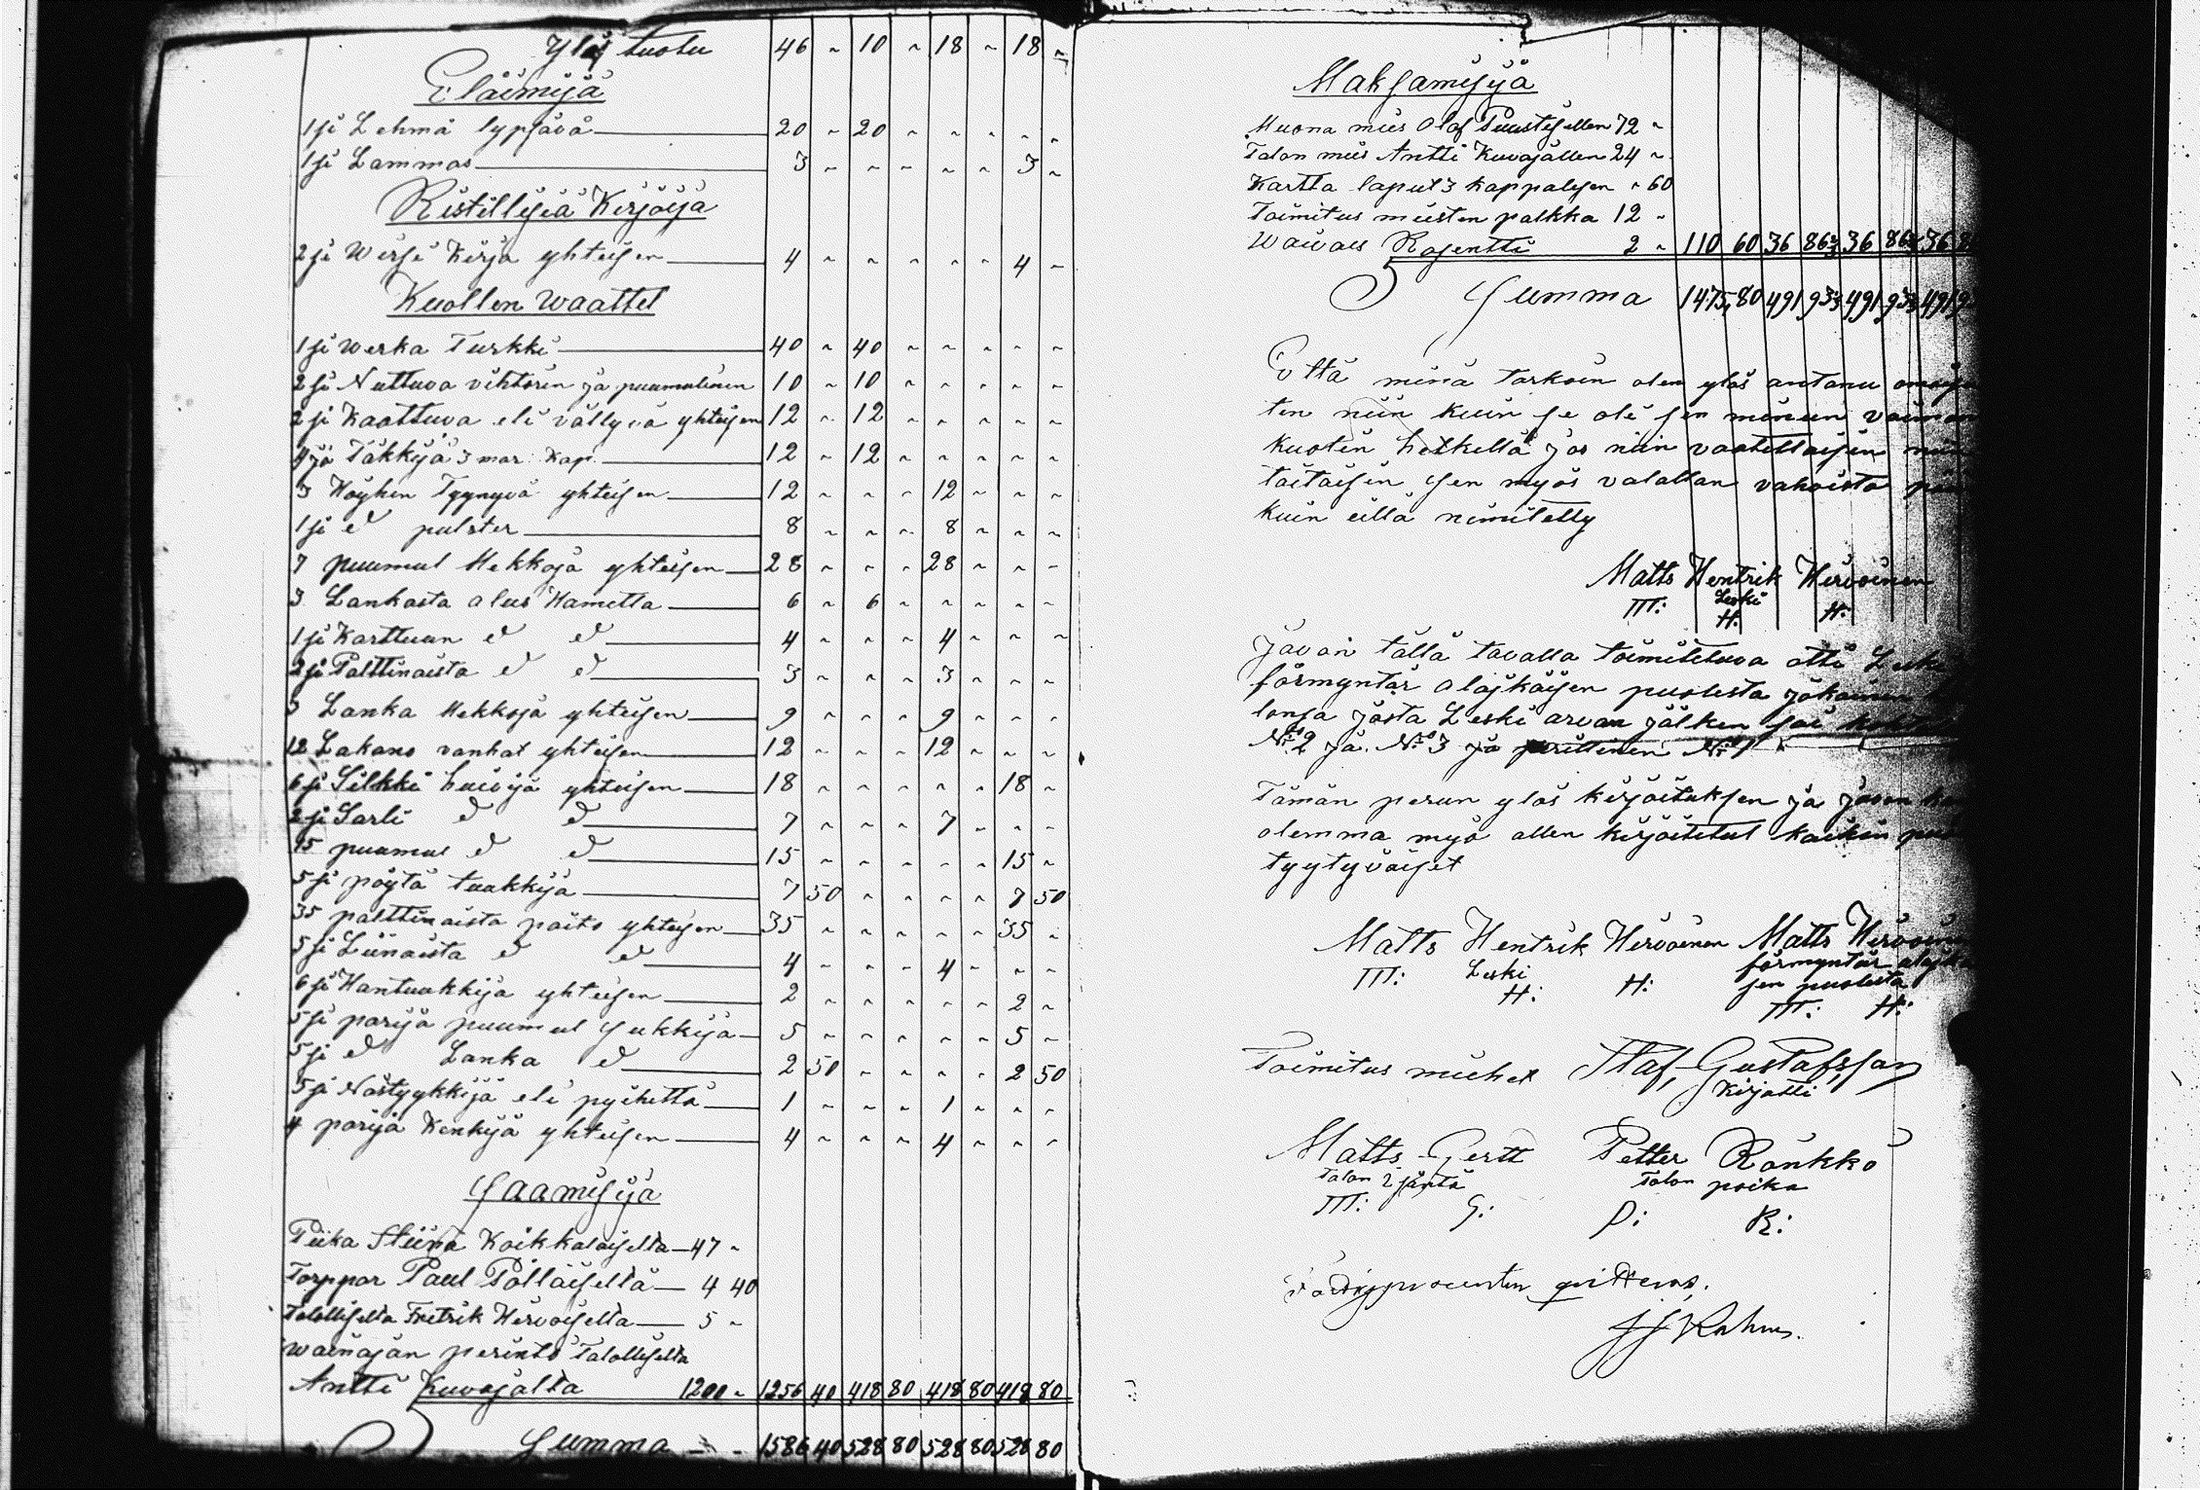 Ylös tuotu 46 " 10 " 18 " 18 "
Eläimijä
1 si Lehmä lypsävä 20 " 20 " " " " "
1 si Lammas 3 " " " " " 3 "
Ristillisiä Kirjoija
2 si Wirsi Kirja yhteisen 4 " " " " " 4 "
Kuollen Waattet
1 si Werka Turkki 40 " 40 " " " " "
2 si Nuttuva vihtorin ja puumulinen 10 " 10 " " " " "
2 si Kaattuva eli vällyvä yhteisen 12 " 12 " " " " "
4 jä Täkkijä 3 mar: kap. 12 " 12 " " " " "
3 Höyhen Tyynyvä yhteisen 12 " " " 12 " " "
1 si d pulster 8 " " " 8 " " "
7 puumul Hekkoja yhteisen 28 " " " 28 " " "
3 Lankasta alus Hametta 6 " 6 " " " " "
1 si Karttuun d d 4 " " " 4 " " "
2 si Palttinaista d d 3 " " " 3 " " "
3 Lanka Hekkoja yhteisen 9 " " " 9 " " "
12 Lakano vanhat yhteisen 12 " " " 12 " " "
6 si Silkki huivija yhteisen 18 " " " " " 18 "
2 si Sarli d d 7 " " " 7 " " "
15 puumul d d 15 " " " " " 15 "
5 si pöytä tuukkija 7 50 " " " " 7 50
35 palttinaista paito yhteisen 35 " " " " " 35 "
5 si Liinaista d d 4 " " " 4 " " "
6 si Hantuukkija yhteisen 2 " " " " " 2 "
5 si parija puumul sukkija 5 " " " " " 5 "
5 si d Lanka d 2 50 " " " " 2 50
5 si Nästyykkijä eli pyihettä 1 " " " 1 " " "
4 parija Kenkijä yhteisen 4 " " " 4 " " "
Saamisija
Piika Stiina Koikkalaiselta 47 "
Torppar Paul Pölläiseltä 4 40
Talolliselta Fretrik Hirvoiselta 5 "
Wainajan perintö Talolliselta
Antti Kuvajalta 1200 " 1256 40 418 80 418 80 418 80
Summa 1586 40 528 80 528 80 528 80
Maksamisija
Muona mies Olof Puustisellen 72 "
Talon mies Antti Kuvajallen 24 "
Kartta laput 3 kappalesen " 60
Toimitus miesten palkka 12 "
Waivais Rosentti 2 " 110 60 36 86 2/3 36 86 2/3 36
Summa 1475 80 491 93 1/3 491 93 1/3 491
Että minä tarkoin olen ylös antanu
ten niin kuin se oli sen minun
kuolin hetkellä jos niin vaatittaisin
taitaisin sen myös valallan vahvista
kuin eillä nimitetty
Matts Hentrik Hirvoinen
Leski
M: H: H:
Javan tällä tavalla toimitetuva otti
förmyntär alaikäisen puolesta jokainen
lonsa josta Leski arvan jälken sai
No 2 ja No 3 ja perillinen No 1
Tämän perun ylös kirjoituksen ja javon
olemma myö allen kirjoitetut kaikin
tyytyväiset
Matts Hentrik Hirvoinen Matts
Leski förmyntär
M: H: H: sen puolesta
M: H:
Toimitus miehet Staf Gustafsson
Kirjatti
Matts Gertt Petter Rönkkö
Talon isäntä Talon poika
M: G: P: R:
qvitteras.